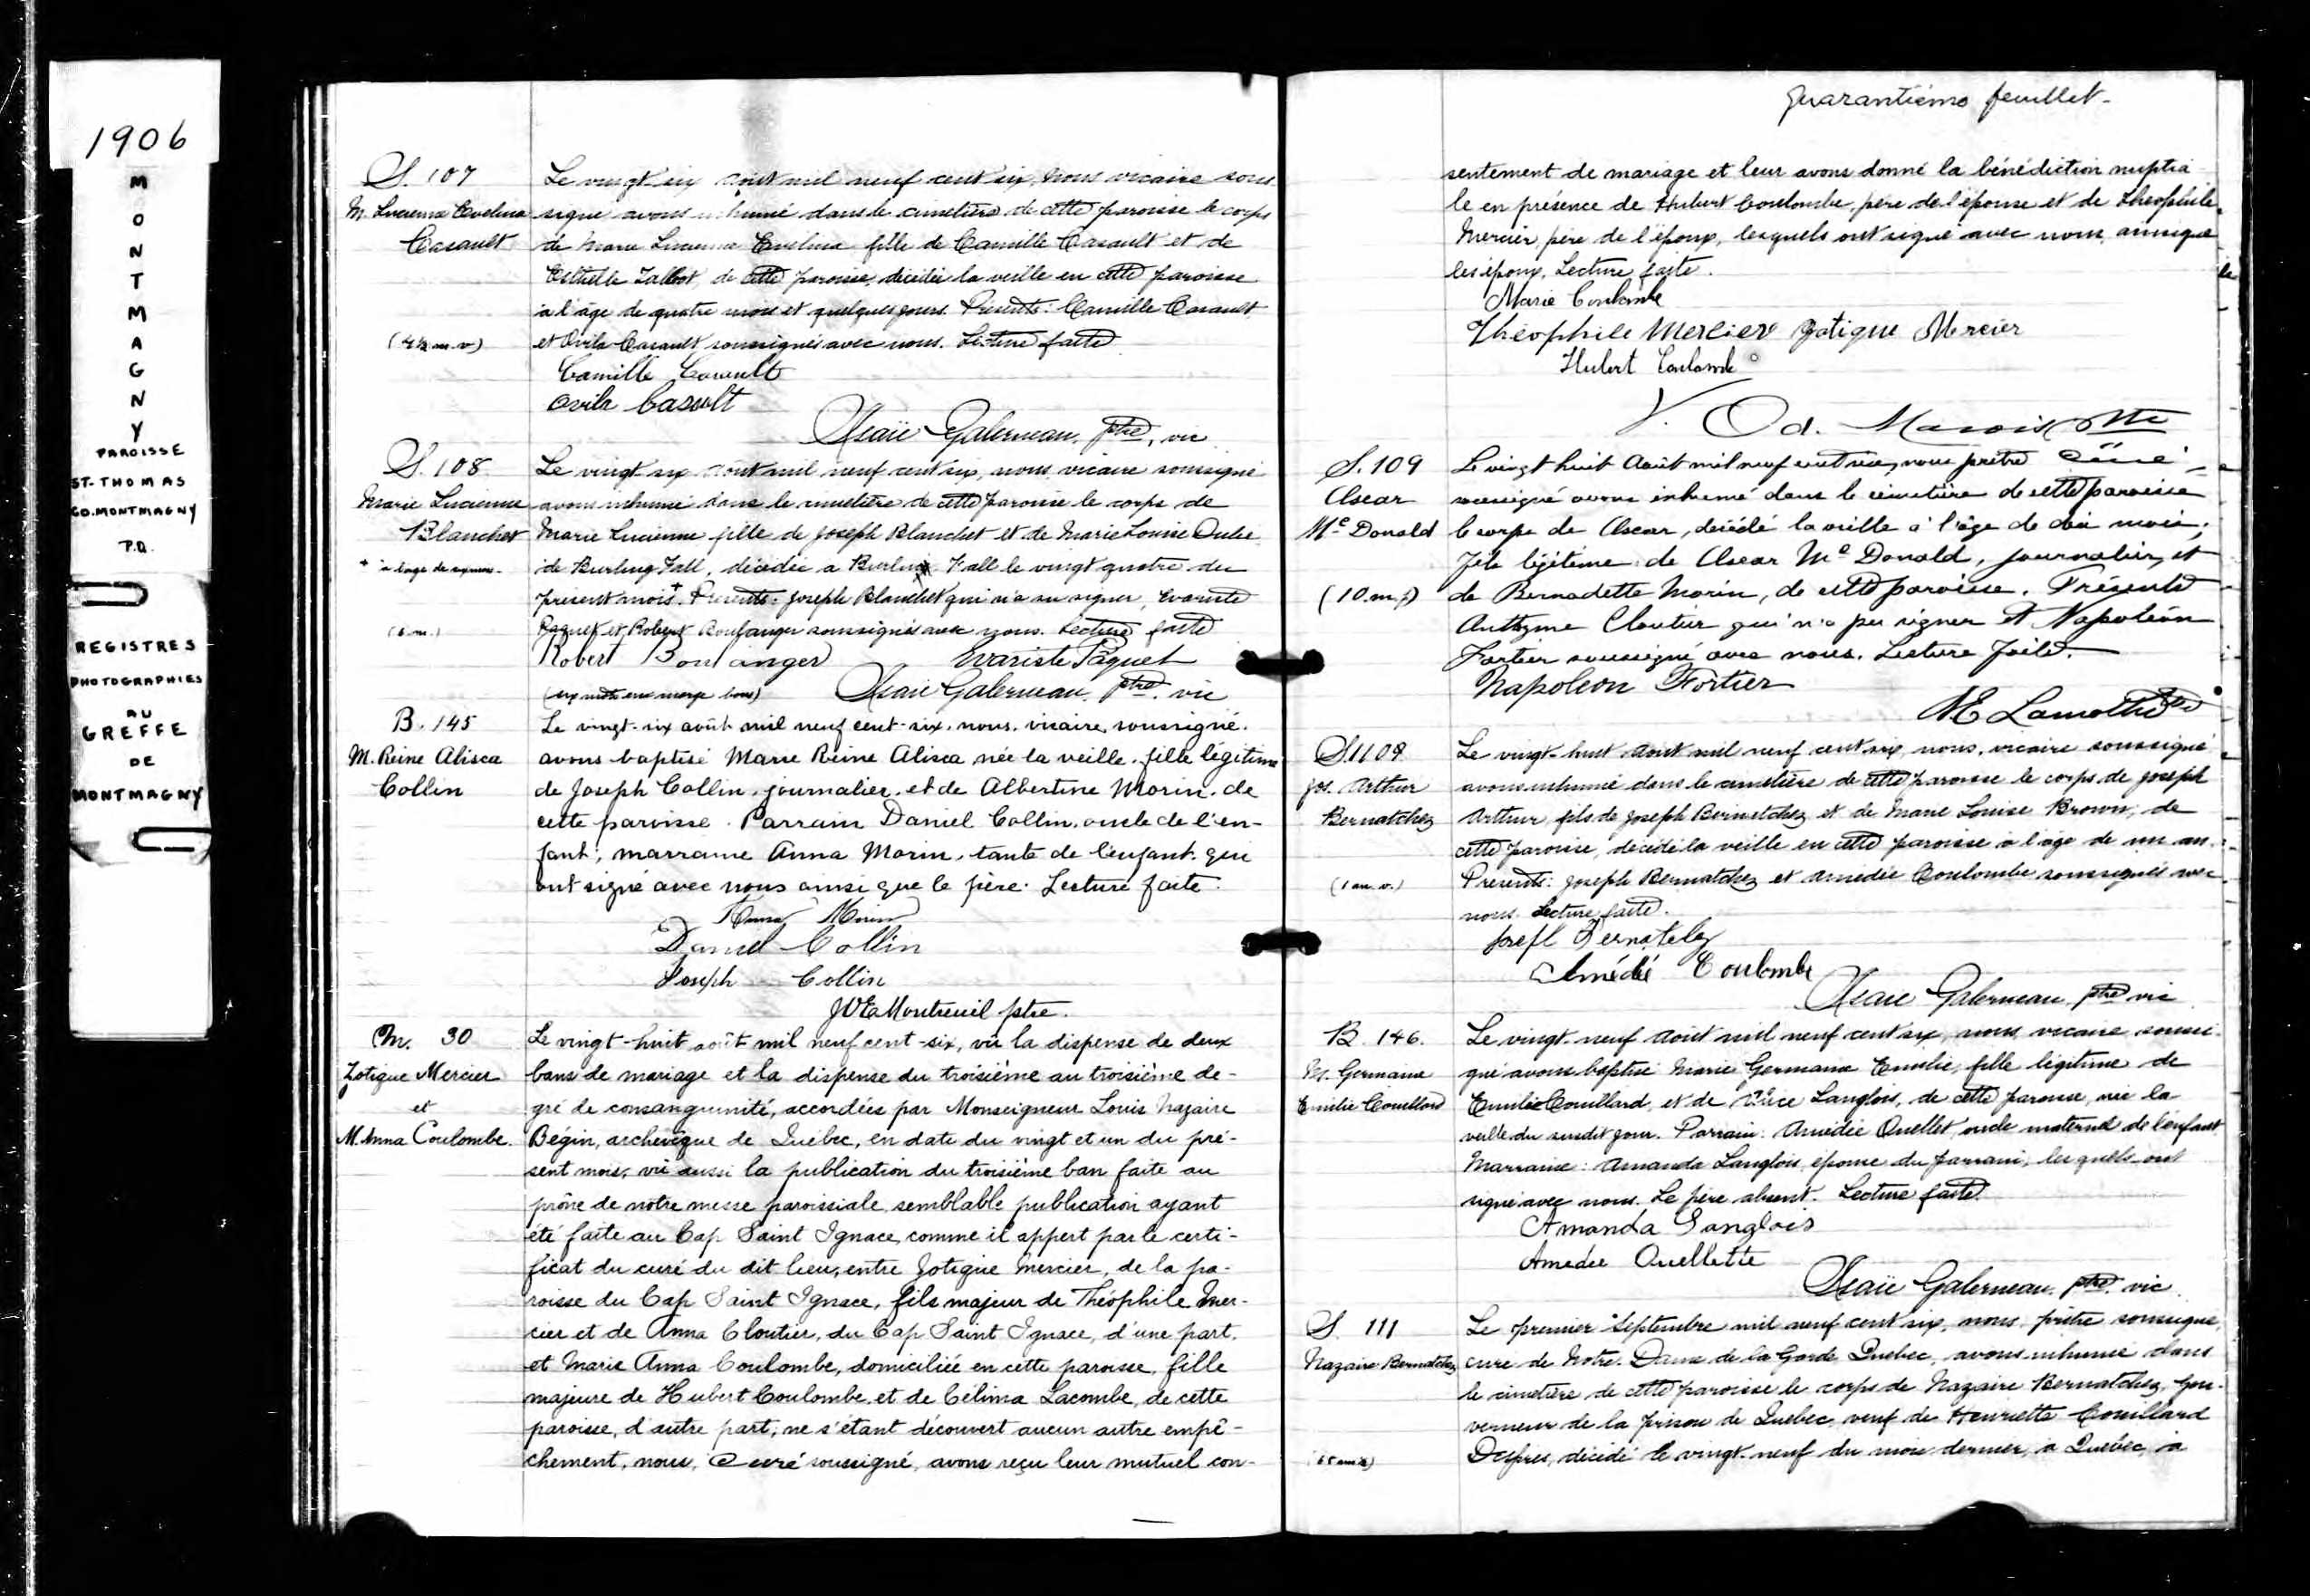 1906
MONTMAGNY
PAROISSE
ST-THOMAS
CO. MONTMAGNY
P.Q.
REGISTRES
PHOTOGRAPHIES
AU
GREFFE
DE
MONTMAGNY
S. 107
M. Lucienne Evelina
Casault
(4½ m. v.)
Le vingt-six août mil neuf cent six, nous vicaire sous
signé avons inhumé dans le cimetière de cette paroisse le corps
de Marie Lucienne Evelina fille de Camille Casault et de
Talbot, de cette paroisse, décédée la veille en cette paroisse
à l'âge de quatre mois et quelques jours. Présents: Camille Casault
et Ovila Casault soussignés avec nous. Lecture faite
Camille Casault
Ovila Casault
Isaïe Galerneau, ptre, vic
S. 108
Marie Lucienne
Blanchet
+ à l'age de six mois.
(6 m.)
Le vingt six août mil neuf cent six, nous, vicaire soussigné
avons inhumé dans le cimetière de cette paroisse le corps de
Marie Lucienne fille de Joseph Blanchet et de Marie Louise
de Burling Fall, décédée a Fall le vingt quatre du
present mois +. Présents: Joseph Blanchet qui n'a su signer, Evariste
Paquet et Robert Boulanger soussignés avec nous. Lecture faite
Robert Boulanger Evariste Paquet
(six mots en marge bons) Isaïe Galerneau, ptre. vic
B. 145
M. Reine Alisca
Collin
Le vingt-six août mil neuf cent-six, nous, vicaire, soussigné.
avons baptisé Marie Reine Alisca, née la veille, fille légitime
de Joseph Collin, journalier, et de Albertine Morin, de
cette paroisse. Parrain Daniel Collin, oncle de l'en-
fant; marraine Anna Morin, tante de l'enfant. qui
ont signé avec nous ainsi que le père. Lecture faite.
Anna Morin
Daniel Collin
Joseph Collin
Montreuil ptre.
M. 30
Zotique Mercier
et
M. Anna Coulombe.
Le vingt-huit août mil neuf cent-six, vu la dispense de deux
bans de mariage et la dispense du troisième au troisième de-
gré de consanguinité, accordées par Monseigneur Louis Nazaire
Bégin, archevêque de Québec, en date du vingt et un du pré-
sent mois, vu aussi la publication du troisième ban faite au
prône de notre messe paroissiale, semblable publication ayant
été faite au Cap Saint Ignace, comme il appert par le certi-
ficat du curé du dit lieu, entre Zotique Mercier, de la pa-
roisse du Cap Saint Ignace, fils majeur de Théophile Mer-
cier et de Anna Cloutier, du Cap Saint Ignace, d'une part.
et Marie Anna Coulombe, domiciliée en cette paroisse, fille
majeure de Hubert Coulombe, et de Célima Lacombe, de cette
paroisse, d'autre part; ne s'étant découvert aucun autre empê-
chement, nous, curé soussigné, avons reçu leur mutuel con-
Quarantième feuillet-
sentement de mariage et leur avons donné la bénédiction nuptia-
le en présence de Hubert Coulombe, père de l'épouse et de Théophile
Mercier, père de l'époux, lesquels ont signé avec nous, ainsi que
les époux. Lecture faite.
Marie Coulombe
Théophile Mercier Zotique Mercier
Hubert Coulombe
V. Od. Marois ptre
S. 109
Oscar
Mc Donald
(10. m. f)
Le vingt huit Août mil neuf cent six, nous prêtre
soussigné avons inhumé dans le cimetière de cette paroisse
le corps de Oscar, décédé la veille à l'âge de dix mois,
fils légitime de Oscar Mc Donald, journalier, et
de Bernadette Morin, de cette paroisse. Présents
Anthyme Cloutier qui n'a pu signer et Napoléon
Fortier soussigné avec nous. Lecture faite.
Napoleon Fortier
Lamothe Ptre
S. 110
Jos. Arthur
Bernatchez
(1 an. v.)
Le vingt-huit Août mil neuf cent six, nous, vicaire soussigné
avons inhumé dans le cimetière de cette paroisse le corps de Joseph
Arthur, fils de Joseph Bernatchez et de Marie Louise Brown, de
cette paroisse, décédé la veille en cette paroisse à l'âge de un an.
Présents: Joseph Bernatchez et Amédée Coulombe soussignés avec
nous. Lecture faite.
Josefl Bernatchez
Amédé Coulombe
Isaïe Galerneau, ptre vic
B. 146.
M. Germaine
Emilie Couillard
Le vingt-neuf Août mil neuf cent six, nous, vicaire soussi-
gné avons baptisé Marie Germaine Emilie, fille légitime de
Couillard, et de Langlois, de cette paroisse, née la
veille du susdit jour. Parrain: Amédée Ouellet, oncle maternel de l'enfant
Marraine: Amanda Langlois, épouse du parrain, lesquels ont
signé avec nous. Le père absent. Lecture faite.
Amanda Langlois
Amedee Ouellette
Isaïe Galerneau, ptre. vic.
S. 111
Nazaire Bernatchez
Le premier Septembre mil neuf cent six, nous, prêtre soussigné,
curé de Notre-Dame de la Garde Québec, avons inhumé dans
le cimetière de cette paroisse le corps de Nazaire Bernatchez, gou-
verneur de la prison de Québec, veuf de Henriette Couillard
Després, décédé le vingt-neuf du mois dernier, à Québec, à